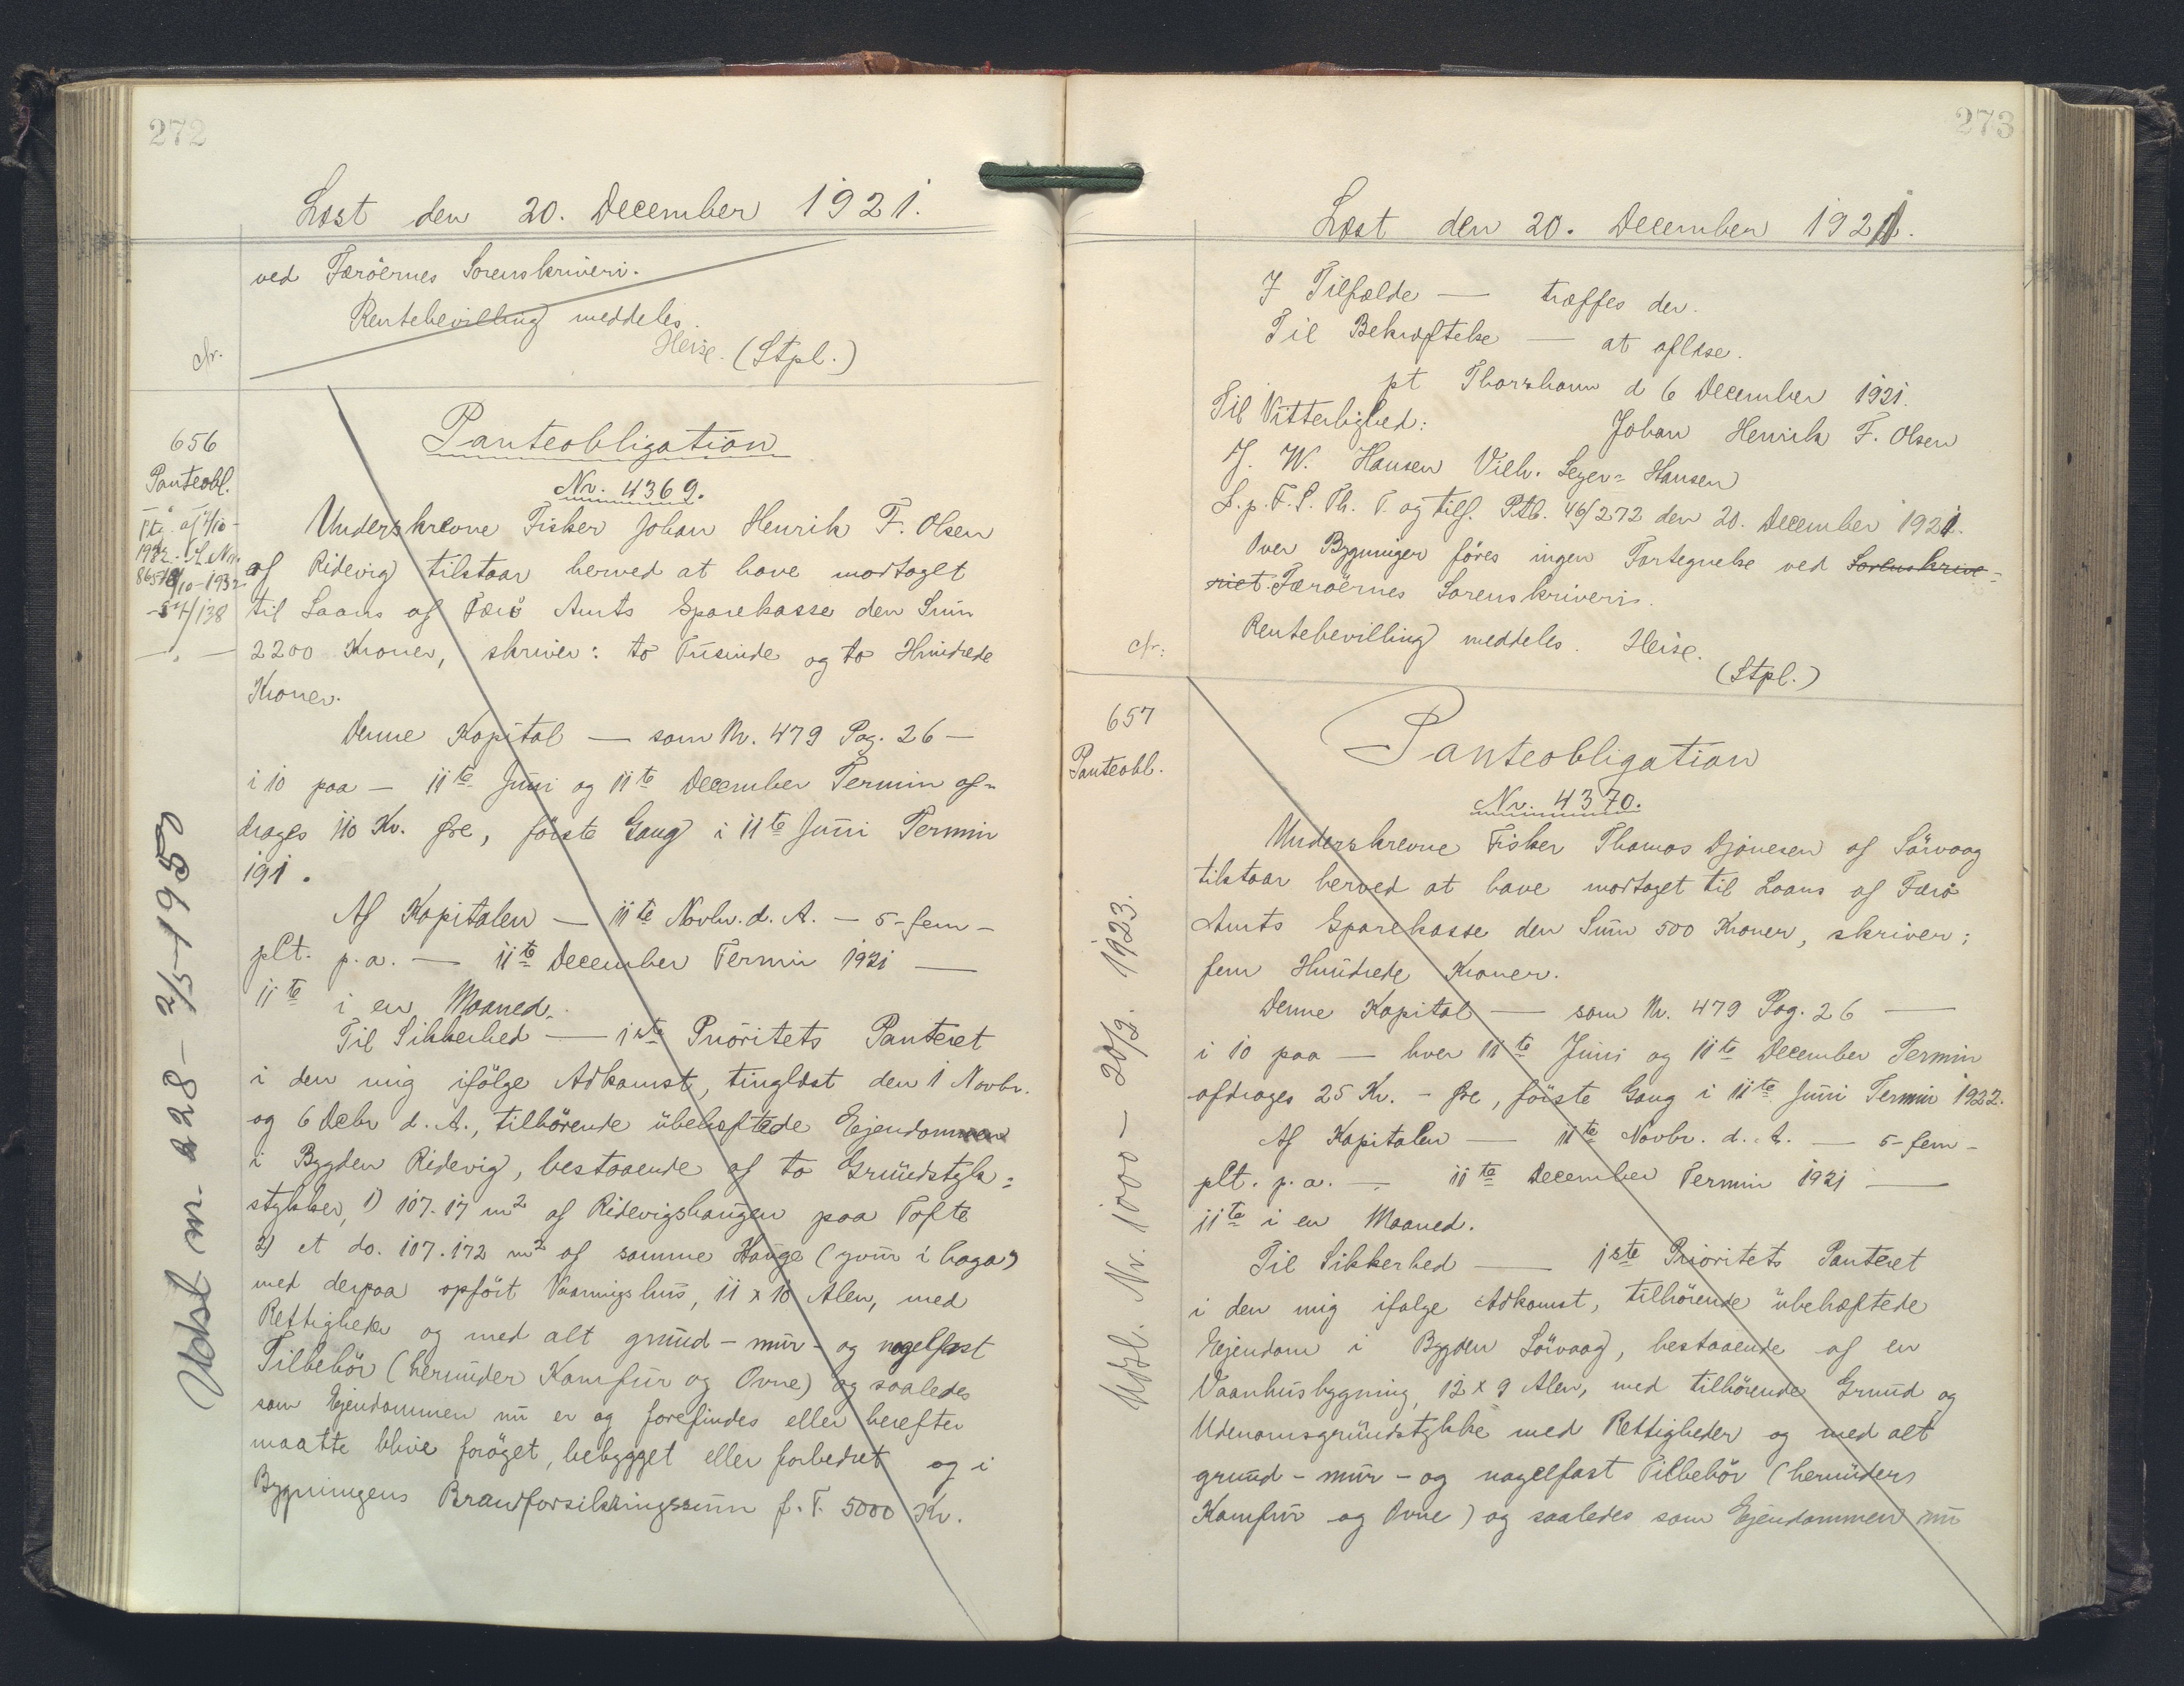 272
Læst den 20. December 1921.
ved Færøernes Sorenskriveri.
Rentebevilling meddeles.
Heise. (Stpl.)
Nr.
656
Panteobl.
Panteobligation
Nr. 4369.
Underskrevne Fisker Johan Henrik F. Olsen
af Ridevig tilstaar herved at have modtaget
til Laans af Færø Amts Sparekasse den Sum
2200 Kroner, skriver: to Tusinde og to Hundrede
Kroner.
Denne Kapital — som Nr. 479 Pag. 26 —
i 10 paa — 11te Juni og 11te December Termin af-
drages 110 Kr. Øre, første Gang i 11te Juni Termin
191 .
Af Kapitalen — 11te Novbr. d. A. — 5 - fem -
pCt. p.a. — 11te December Termin 1921 —
11te i en Maaned.
Til Sikkerhed — 1ste Prioritets Panteret
i den mig ifølge Adkomst, tinglæst den 1 Novbr.
og 6 Debr d. A., tilhørende übehæftede Ejendommen
i Bygden Ridevig, bestaaende af to Grundstyk=
stykker, 1) 107.17 m² af Ridevigshaugen paa Tofte
2) et do. 107.172 m² af samme Hauge (yvir i haga)
med derpaa opført Vaaningshus, 11 x 10 Alen, med
Rettigheder og med alt grund - mur - og nagelfast
Tilbehør (herunder Komfur og Ovne) og saaledes
som Ejendommen nu er og forefindes eller herefter
maatte blive forøget, bebygget eller forbedret og i
Bygningens Brandforsikringssum f. T. 5000 Kr.
Udsl m. 228 - 2/5-1950
273
Læst den 20. December 1921.
I Tilfælde — træffes der.
Til Bekræftelse — at aflæse.
pt Thorshavn d 6 December 1921.
Til Vitterlighed:
Johan Henrik F. Olsen
J. W. Hansen Vilh. Leger= Hansen
L.p.F.S. Th. T. og tilf. Ptb. 46/272 den 20. December 1921.
Over Bygninger føres ingen Fortegnelse ved Sorenskrive-
riet Færøernes Sorenskriveri.
Rentebevilling meddeles. Heise.
(Stpl.)
Nr:
657
Panteobl.
Panteobligation
Nr. 4370.
Underskrevne Fisker Thomas Djonesen af Sørvaag
tilstaar herved at have modtaget til Laans af Færø
Amts Sparekasse den Sum 500 Kroner, skriver:
fem Hundrede Kroner.
Denne Kapital — som Nr. 479 Pag. 26 —
i 10 paa — hver 11te Juni og 11te December Termin
afdrages 25 Kr. - Øre, første Gang i 11te Juni Termin 1922.
Af Kapitalen — 11te Novbr. d. A. — 5 - fem -
pCt. p.a. — 11te December Termin 1921 —
11te i en Maaned.
Til Sikkerhed — 1ste Prioritets Panteret
i den mig ifølge Adkomst, tilhørende übehæftede
Ejendom i Bygden Sørvaag, bestaaende af en
Vaanhusbygning, 12 x 9 Alen, med tilhørende Grund og
Udenomsgrundstykke med Rettigheder og med alt
grund - mur - og nagelfast Tilbehør (herunder
Komfur og Ovne) og saaledes som Ejendommen nu
Udsl. Nr. 1000 - 20/9. 1923.